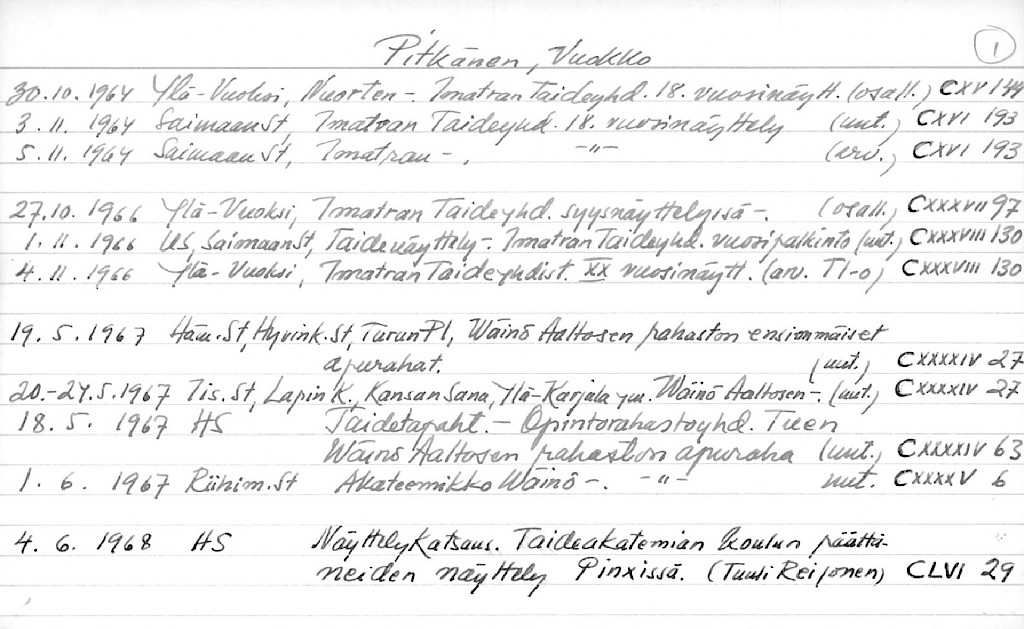 Pitkänen, Vuokko 1
30.10.1964 Ylä-Vuoksi, Nuorten -. Imatran Taideyhd. 18. vuosinäytt. (osall.) CXV 144
3.11.1964 SaimaanSt, Imatran Taideyhd. 18. vuosinäyttely (uut.) CXVI 193
5.11.1964 SaimaanSt, Imatran -. -"- (arv.) CXVI 193
27.10.1966 Ylä-Vuoksi, Imatran Taideyhd. syysnäyttelyssä -. (osall.) CXXXVII 97
1.11.1966 US, SaimaanSt, Taidenäyttely -. Imatran Taideyhd. vuosipalkinto (uut.) CXXXVIII 130
4.11.1966 Ylä-Vuoksi, Imatran Taideyhdist. XX vuosinäytt. (arv. TI-o) CXXXVIII 130
19.5.1967 Häm.St, Hyvink.St, TurunPl, Wäinö Aaltosen rahaston ensimmäiset
apurahat. (uut.) CXXXXIV 27
20.-24.5.1967 Tis.St, Lapin K., Kansan Sana, Ylä-Karjala ym. Wäinö Aaltosen -. (uut.) CXXXXIV 27
18.5. 1967 HS Taidetapaht. - Opintorahastoyhd. Tuen
Wäinö Aaltosen rahaston apuraha (uut.) CXXXXIV 63
1.6. 1967 Riihim.St Akateemikko Wäinö -. -"- uut. CXXXXV 6
4.6. 1968 HS Näyttelykatsaus. Taideakatemian koulun päättä-
neiden näyttely Pinxissä. (Tuuli Reijonen) CLVI 29